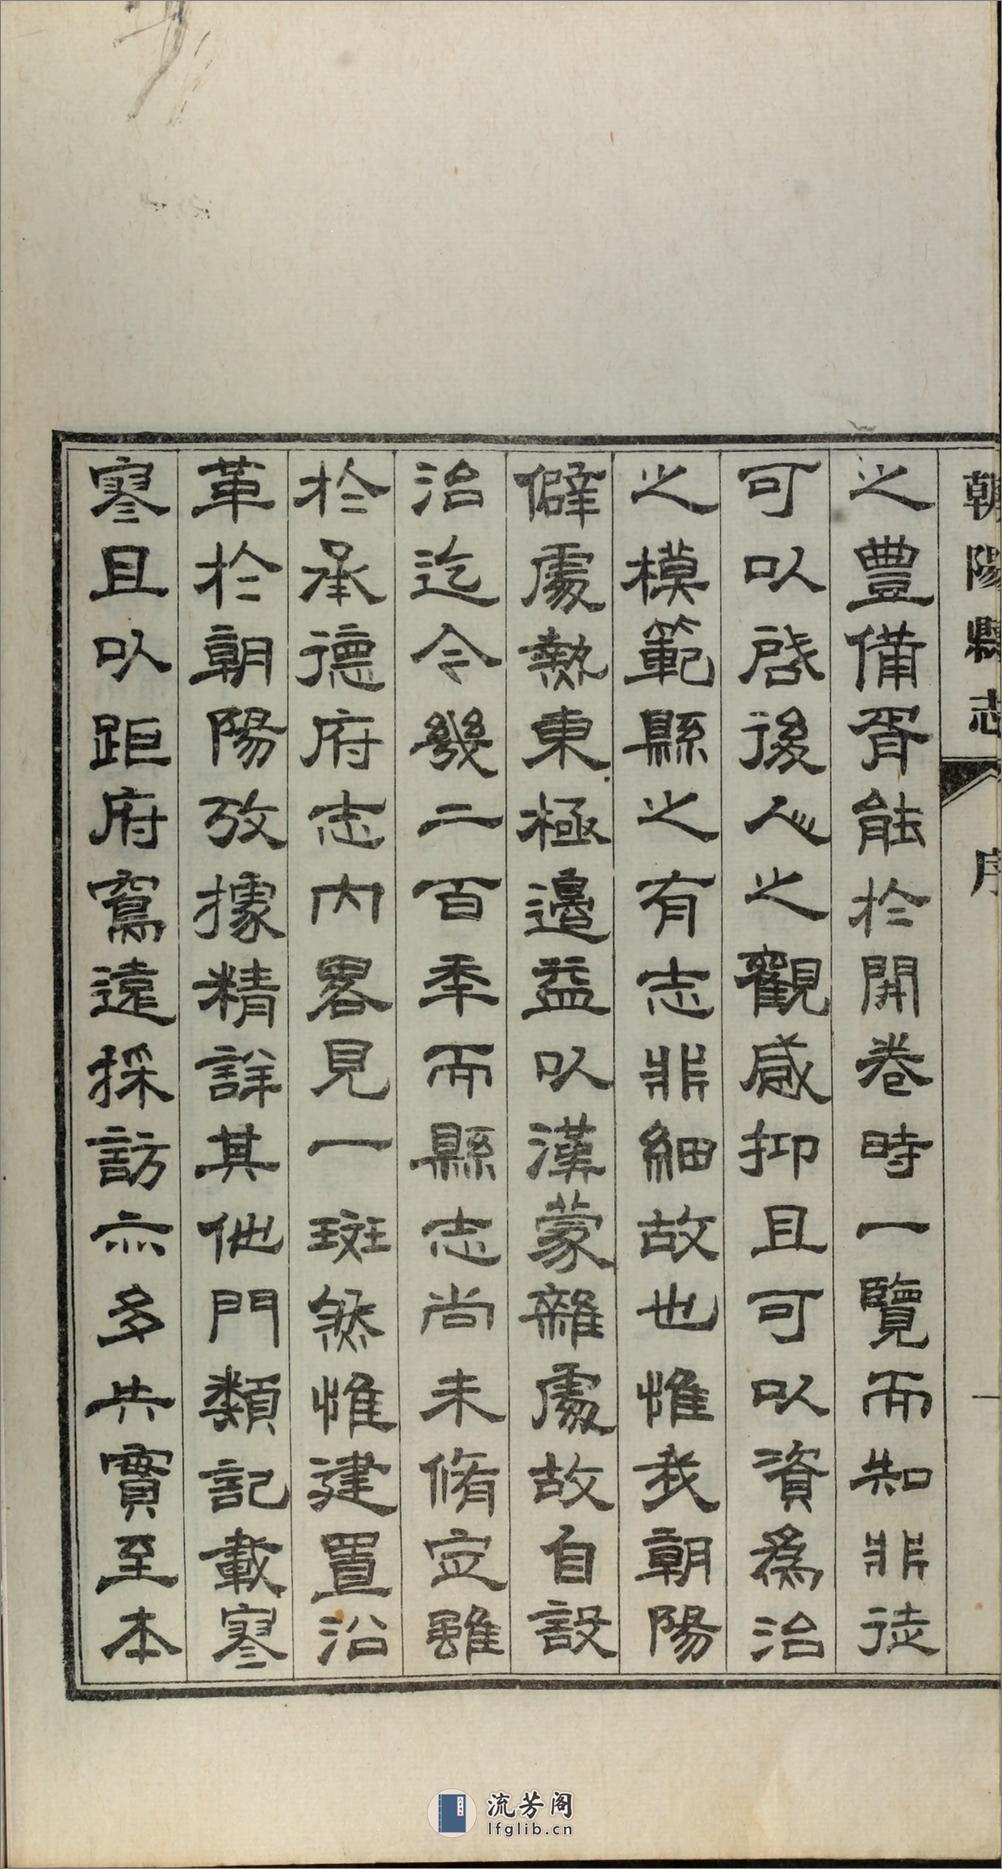 朝陽縣志
序
一
之豐備胥能於開卷時一覽而知非徒
可以啓後人之觀感抑且可以資為治
之模範縣之有志非細故也惟我朝陽
僻處熱東極邊益以漢蒙雜處故自設
治迄今幾二百年而縣志尚未脩定雖
於承德府志內畧見一斑然惟建置沿
革於朝陽攷據精詳其他門類記載寥
寥且以距府寫遠採訪亦多失實至本
流芳阁
lfglib.cn